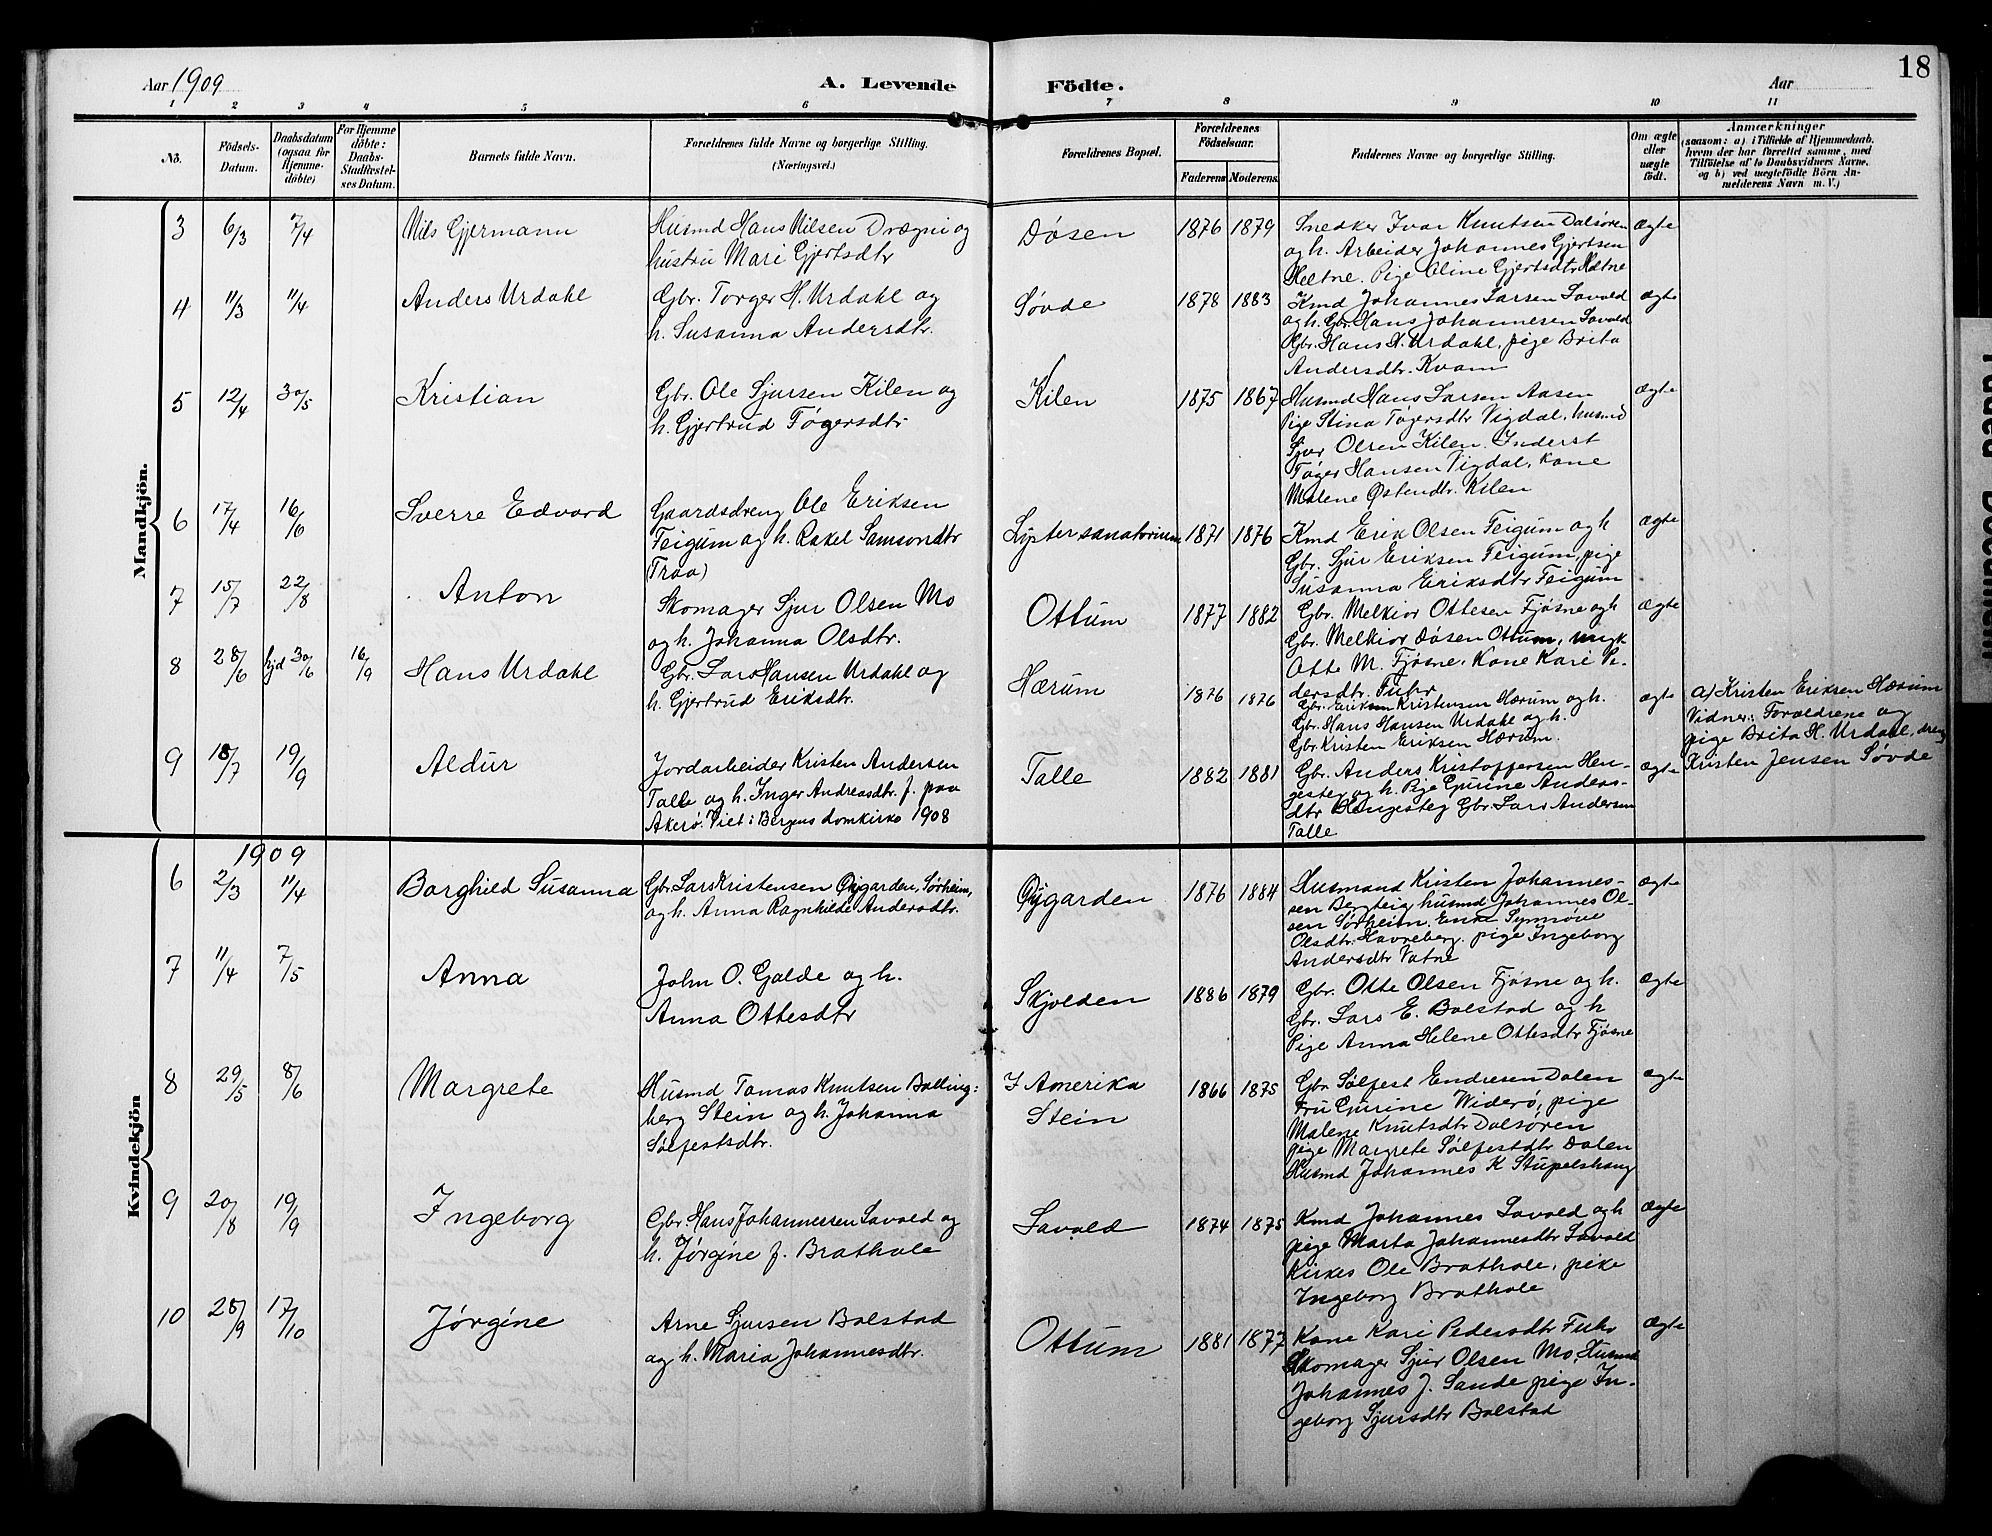 18
Aar 1909
A. Levende Födte.
Aar
1 2 3 4 5 6 7 8 9 10 11
No.
Födsels-Datum.
Daabsdatum (ogsaa for Hjemme-döbte)
For Hjemme döbte: Daabs-Stadfæstel-ses Datum.
Barnets fulde Navn.
Forældrenes fulde Navne og borgerlige Stilling. (Næringsvei.)
Forældrenes Bopæl.
Forældrenes Födselsaar.
Faderens Moderens.
Faddernes Navne og borgerlige Stilling.
Om ægte eller uægte födt.
Anmærkninger
(saasom: a) i Tilfælde af Hjemmedaab,
hvem der har forrettet samme, med
Tilföielse af to Daabsvidners Navne,
og b) ved uægtefödte Börn An-
melderens Navn m. V.)
Mandkjön.
3 6/3 7/4 Nils Gjermann
Husmd Hans Nilsen Drægni og
hustru Mari Gjertsdtr
Døsen 1876 1879
Snedker Ivar Knutsen Dalsøren
og h. Arbeider Johannes Gjertsen
Hætne. Pige Oline Gjertsdtr Hætne
ægte
4 11/3 11/4 Anders Urdahl
Gbr. Torger H. Urdahl og
h. Susanna Andersdtr.
Søvde 1878 1883
Kmd Johannes Larsen Savald
og h. Gbr. Hans Johannesen Savald
Gbr. Hans H. Urdahl, pige Brita
Andersdtr. Kvam
ægte
5 12/4 30/5 Kristian
Gbr. Ole Sjursen Kilen og
h. Gjertrud Tøgersdtr
Kilen 1875 1867
Husmd Hans Larsen Aasen
Pige Stina Tøgersdtr Vigdal, husmd
Sjur Olsen Kilen. Inderst
Tøger Hansen Vigdal, Kone
Malene Østendtr. Kilen
ægte
6 17/4 16/6 Sverre Edvard
Gaardsdreng Ole Eriksen
Feigum og h. Rakel Samsondtr
(Traa)
Lyster sanatorium 1871 1876
Kmd Erik Olsen Feigum og h
Gbr. Sjur Eriksen Feigum, pige
Susanna Eriksdtr Feigum
ægte
7 15/7 22/8 Anton
Skomager Sjur Olsen Mo
og h. Johanna Olsdtr.
Ottum 1877 1882
Gbr. Melkior Ottesen Fjøsne og h
Gbr. Melkior Døsen Ottum, ungk
Otte M. Fjøsne. Kone Kari Pe-
dersdtr. Fuhr
ægte
8 28/6 hjd 30/6 16/9 Hans Urdahl
Gbr. Lars Hansen Urdahl og
h. Gjertrud Eriksdtr.
Hærum 1876 1876
Gbr. Eriksen Kristensen Hærum og h.
Gbr. Hans Hansen Urdahl og h.
Gbr Kristen Eriksen Hærum.
ægte
a) Kristen Eriksen Hærum
Vidner: Forældrene og
pige Brita H. Urdahl, dreng
Kristen Jensen Søvde
9 18/7 19/9 Aldur
Jordarbeider Kristen Andersen
Talle og h. Inger Andreasdtr. f. paa
Akerø. Viet i Bergens domkirke 1908
Talle 1882 1881
Gbr. Anders Kristoffersen Hen-
gesteg og h. Pige Gurine Anders-
dtr Hengesteg Gbr. Lars Andersen
Talle
ægte
Kvindekjön
1909
6 2/3 11/4 Borghild Susanna
Gbr. Lars Kristensen Øygarden, Sørheim,
og h. Anna Ragnhilde Andersdtr.
Øygarden 1876 1884
Husmand Kristen Johannes-
sen Bergteig husmd Johannes Ol-
sen Sørheim. Enke Synnøve
Olsdtr. Havreberg. pige Ingeborg
Andersdtr Vatne
ægte
7 11/4 7/5 Anna
John O. Galde og h.
Anna Ottesdtr
Skjolden 1886 1879
Gbr. Otte Olsen Fjøsne og h.
Gbr. Lars E. Bolstad og h
Pige Anna Helene Ottesdtr Fjøsne
ægte
8 29/5 8/6 Margrete
Husmd Tomas Knutsen Bolling:
berg Stein og h. Johanna
Sølfestsdtr.
I Amerika
Stein 1866 1875
Gbr Sølfest Endresen Dalen
Fru Gurine Widerø, pige
Malene Knutsdtr Dalsøren
pige Margrete Sølfestdtr Dalen
Husmd Johannes K Stupelshaug
ægte
9 20/8 19/9 Ingeborg
Gbr. Hans Johannessen Savald og
h. Jørgine f. Brathole
Savald 1874 1875
Kmd Johannes Savald og h
pige Marta Johannesdtr Savald
Kirkes Ole Brathole, pike
Ingeborg Brathole
ægte
10 28/9 17/10 Jørgine
Arne Sjursen Bolstad
og h. Maria Johannesdtr.
Ottum 1881 1877
Kone Kari Pedersdtr Fuhr
Skomager Sjur Olsen Mo, Husmd
Johannes J. Sande pige In-
geborg Sjursdtr Bolstad
ægte